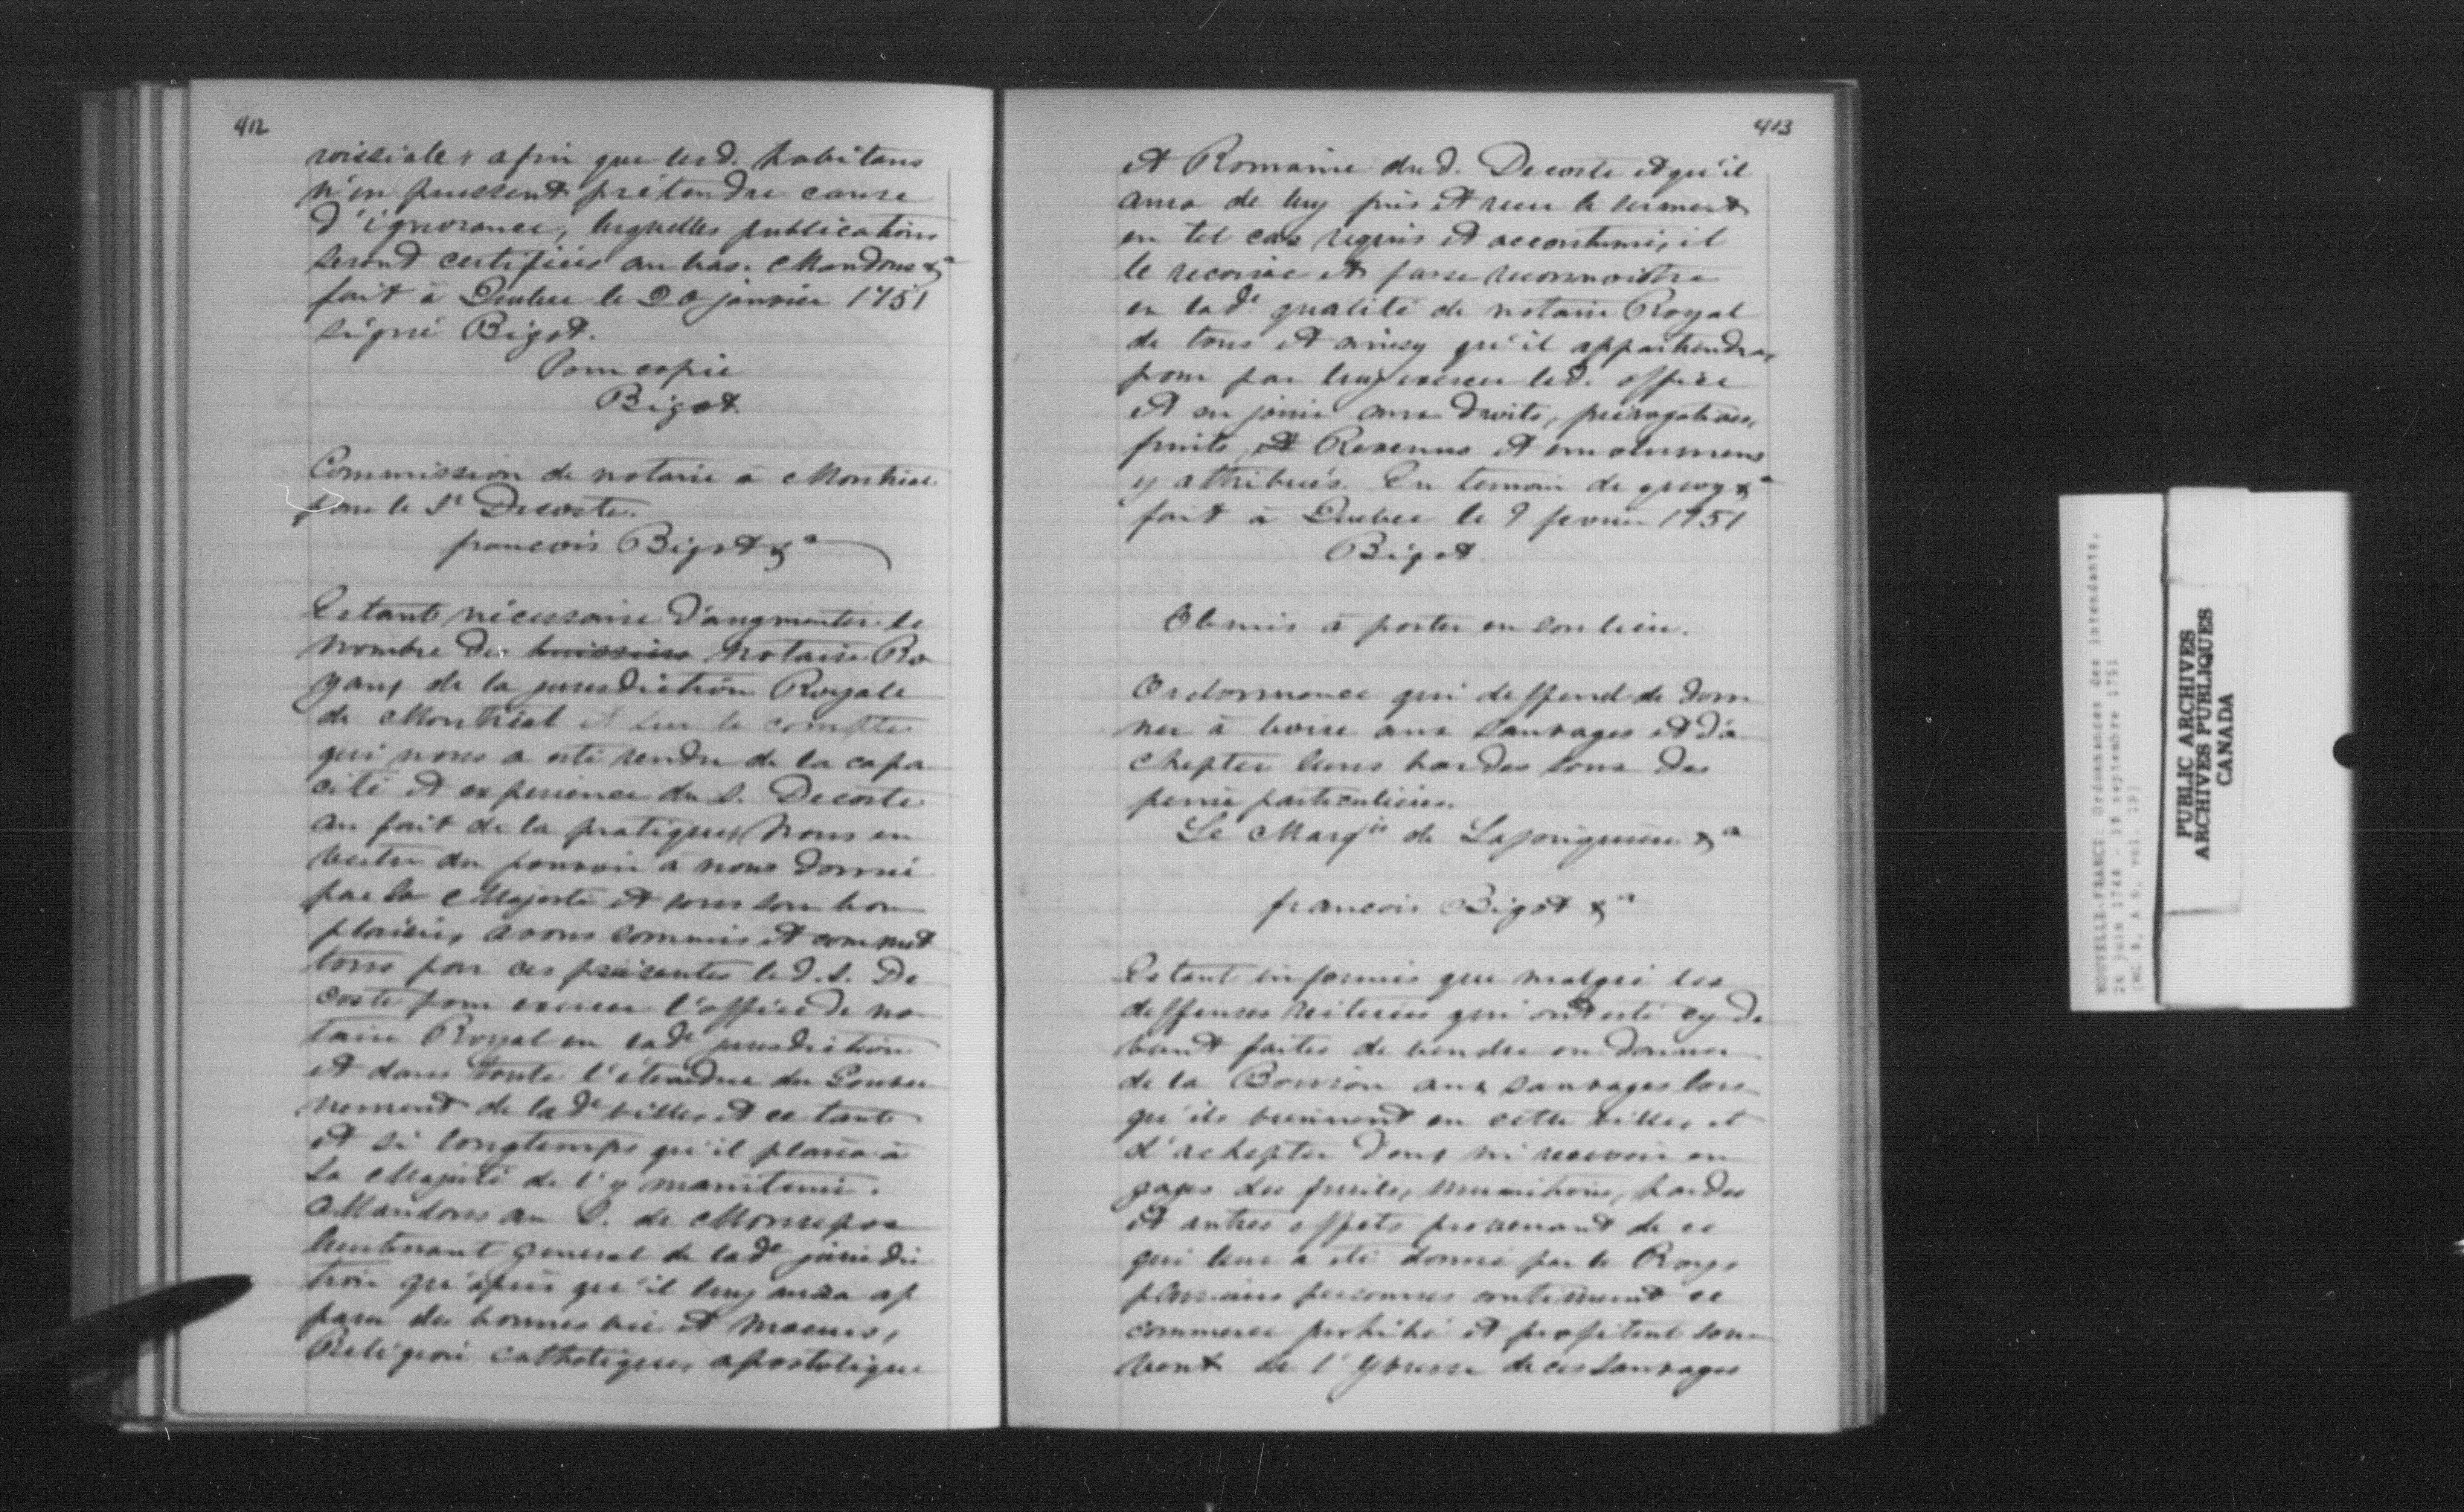 412
roissiale, afin que lesd. habitans
n'en puissent prétendre cause
d'ignorance, lesquelles publications
seront certifiées au bas. Mandons &a
fait à Quebec le 20 janvier 1751
signé Bigot.
Pour copie
Bigot.
Commission de notaire à Montréal
pour le Sr Decoste.
francois Bigot &a
Estant nécessaire d'augmenter le
nombre des huissiers notaires Ro
yaux de la jurisdiction Royale
de Montréal et sur le compte
qui nous a esté rendu de la capa
cité et experience du S. Decoste
au fait de la pratique, Nous en
vertu du pouvoir à nous donné
par Sa Majesté et sous son bon
plaisir, avons commis et commet
tons par ces présentes led. S. De
coste pour exercer l'office de no
taire Royal en lade jurisdiction
et dans toute l'étendue du Gouver
nement de lade ville, et ce tant
et si longtemps qu'il plaira à
Sa Majesté de l'y maintenir.
Mandons au S. de Monrepos
lieutenant general de lade jurisdic
tion qu'après qu'il luy aura ap
paru des bonnes vie et moeurs,
Religion catholique, apostolique
413
et Romaine dud. Decoste et qu'il
aura de luy pris et receu le serment
en tel cas requis et accoutumé, il
le reçoive et fasse reconnoitre
en lade qualité de notaire Royal
de tous et ainsy qu'il appartiendra,
pour par luy exercer led. office
et en jouir aux droits, prérogatives,
fruits, et Revenus et emolumens
y attribués. En temoin de quoy &a
fait à Quebec le 9 fevrier 1751
Bigot
Obmis à porter en son lieu.
Ordonnance qui deffend de don
ner à boire aux sauvages et d'a
chepter leurs hardes sous des
peines particulières.
Le Marqis de Lajonquiere &a
francois Bigot &a
Estant informés que malgré les
deffenses réiterées qui ont esté cy de
vant faites de vendre ou donner
de la Boisson aux sauvages lors
qu'ils viennent en cette ville, et
d'achepter d'eux ni recevoir en
gages des fusils, munitions, hardes
et autres effets provenant de ce
qui leur a été donné par le Roy,
plusieurs personnes continuent ce
commerce prohibé et profitent sou
vent de l'yvresse de ces sauvages
NOUVELLE-FRANCE: Ordonnances des intendants,
26 juin 1748 - 18 septembre 1751
(MG 8, A 6, vol. 19)
PUBLIC ARCHIVES
ARCHIVES PUBLIQUES
CANADA